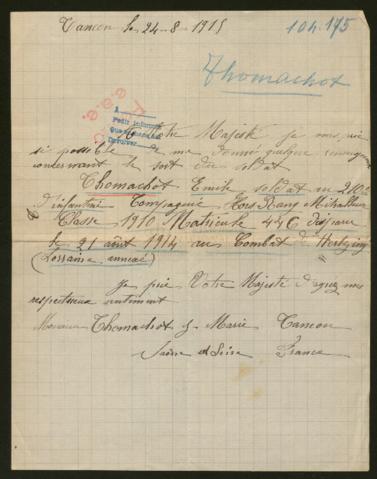 Tancon le 24-8-1915
104.175
Thomachot
A
Votre Majesté je vous prie
si possible de me donné quelque renseigne
concervant le sort du soldat
Thomachot Emile soldat au 210e
d'infantrie Compagnie Hors Rang Mitrailleur
Classe 1910 Matricule 446 disparu
le 21 août 1914 au Combat de
(Lorraine annexé)
Je prie Votre Majesté d'agréez mes
respectueux sentiment
Monsieur Thomachot J. Marie Tancon
Saône et Loire France